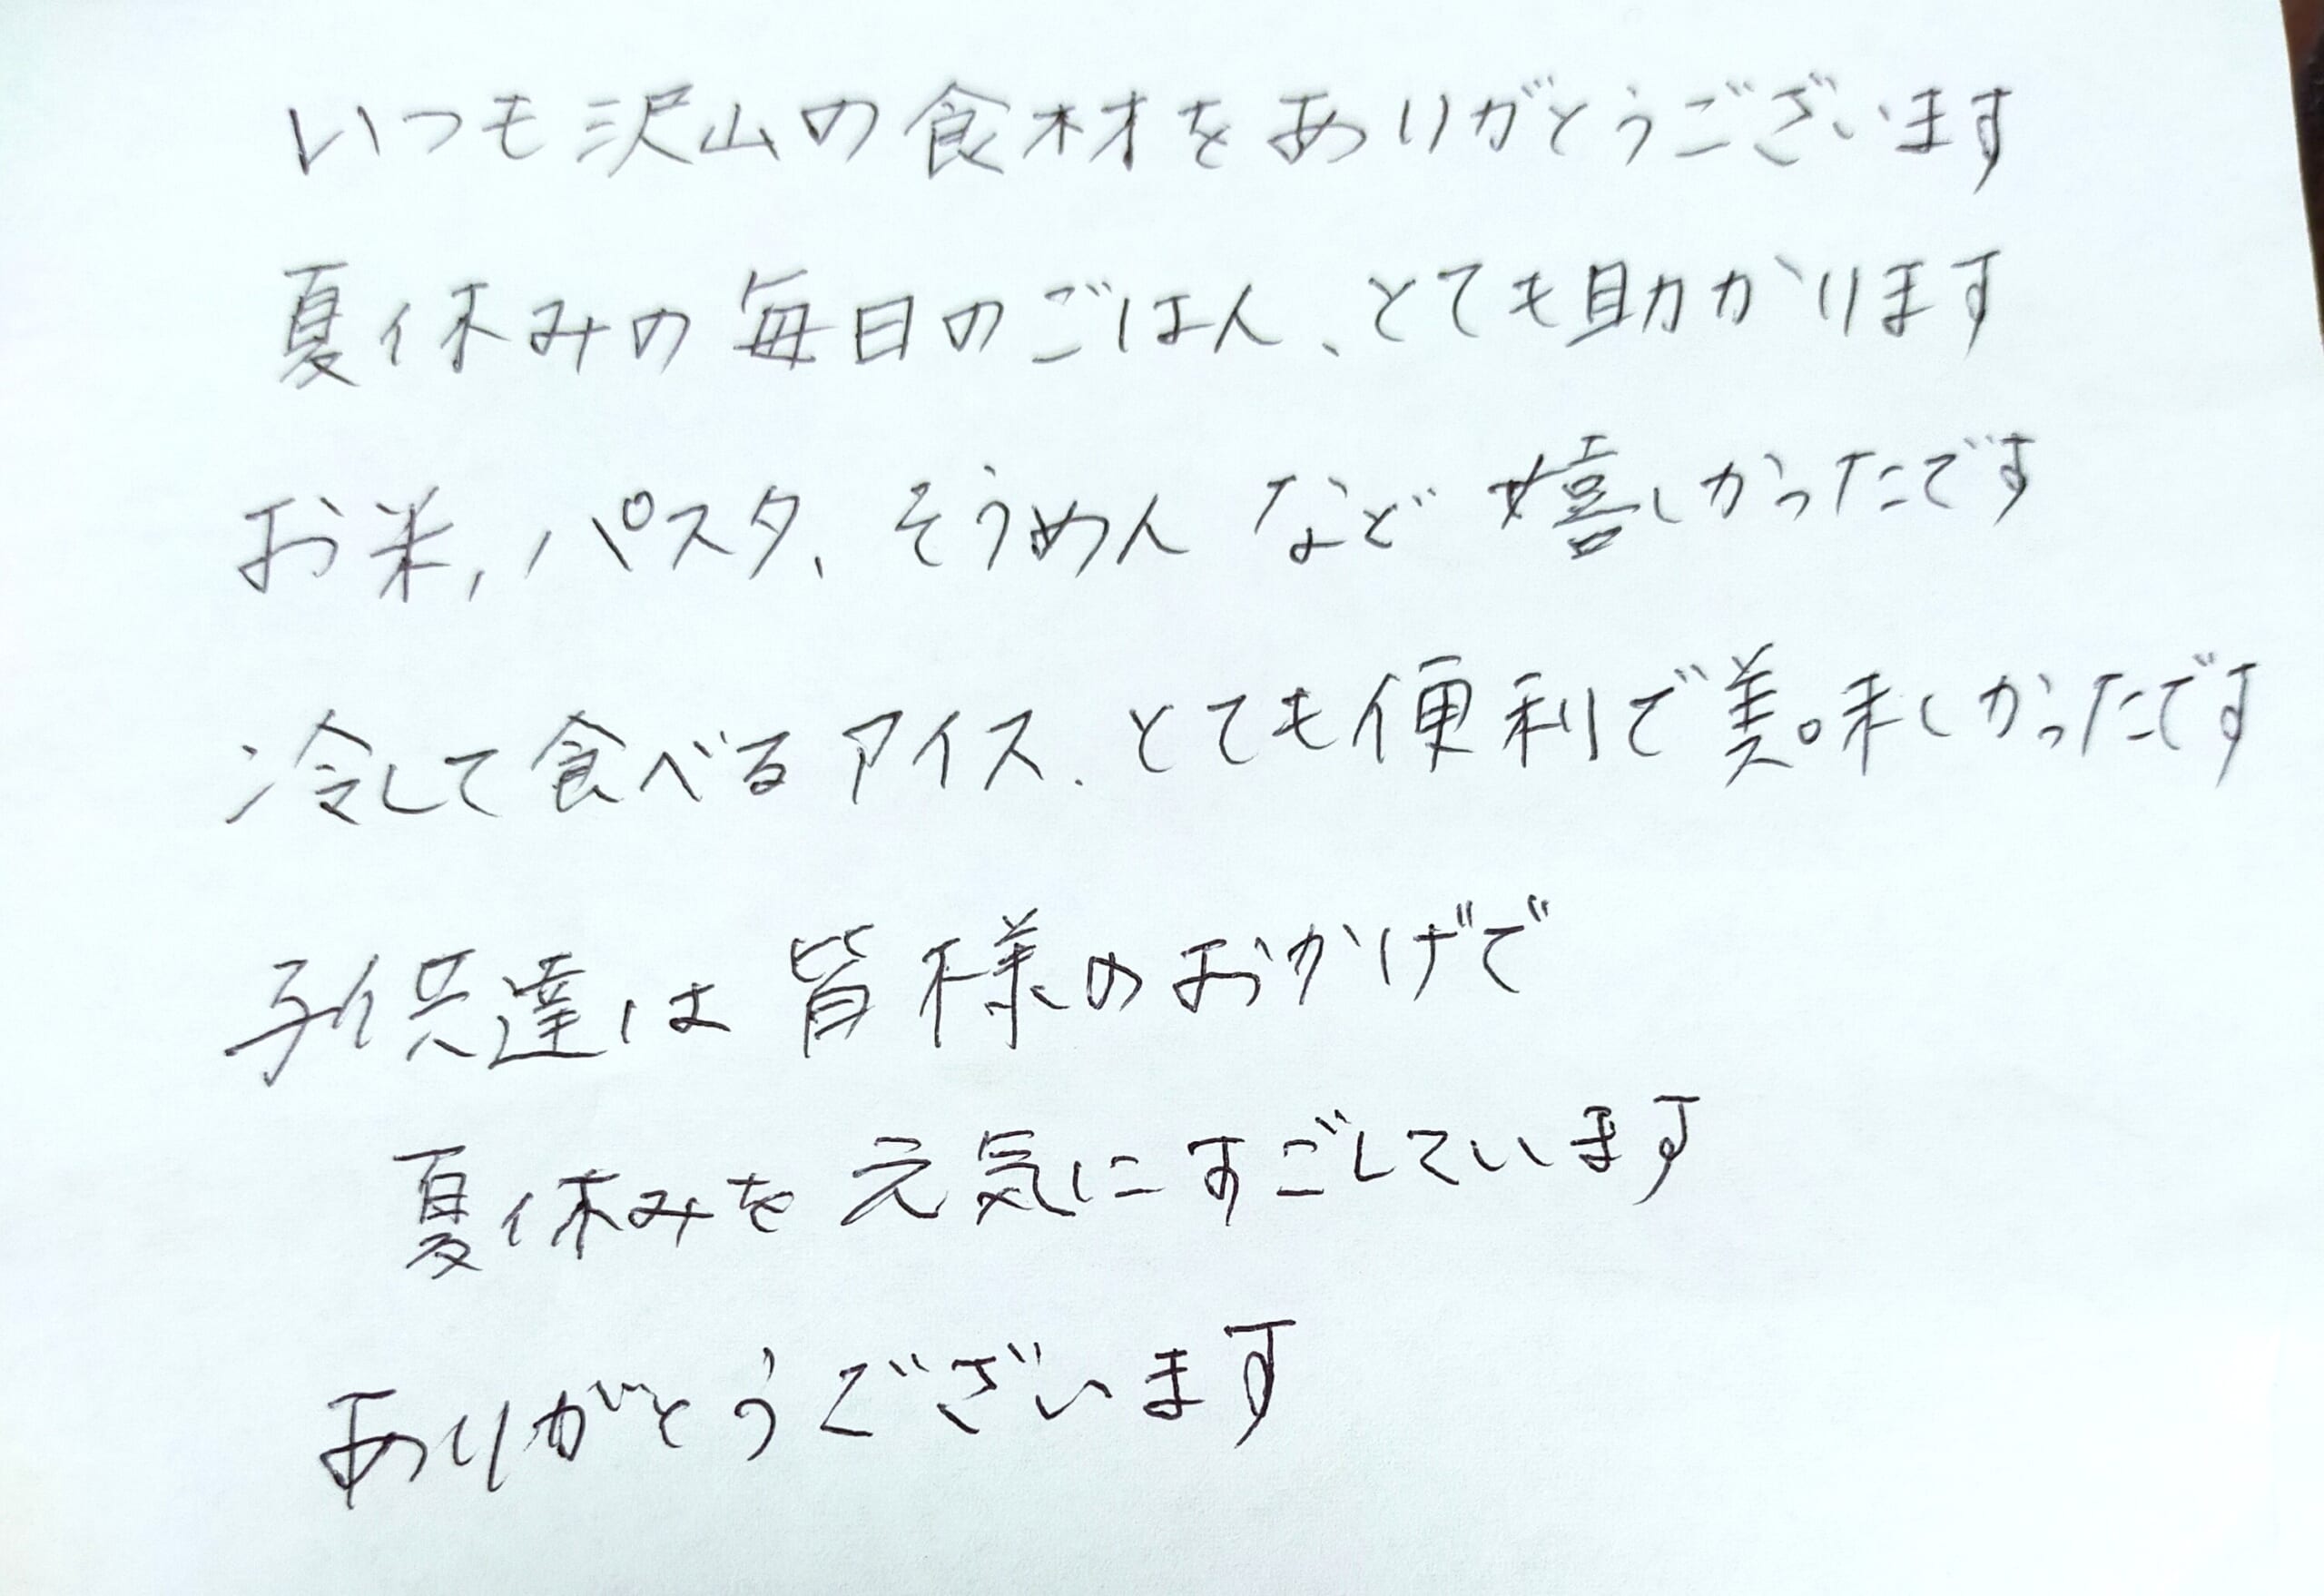 いつも沢山の食材をありがとうございます
夏休みの毎日のごはん、とても助かります
お米、パスタ、そうめん など 嬉しかったです
冷して食べるアイス、とても便利で美味しかったです
子供達は 皆様のおかげで
夏休みを 元気にすごしています
ありがとうございます